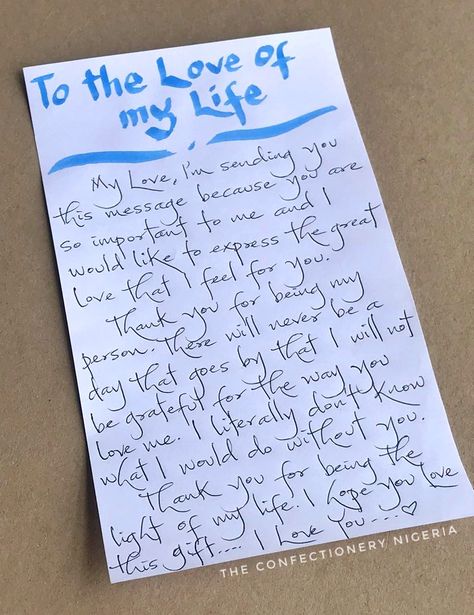 To the Love of
my Life
My Love, I'm sending you
this message because you are
so important to me and I
would like to express the great
love that I feel for you.
Thank you for being my
person. There will never be a
day that goes by that I will not
be grateful for the way you
love me. I literally don't know
what I would do without you.
Thank you for being the
light of my life. I hope you love
this gift.... I Love You....♡
THE CONFECTIONERY NIGERIA